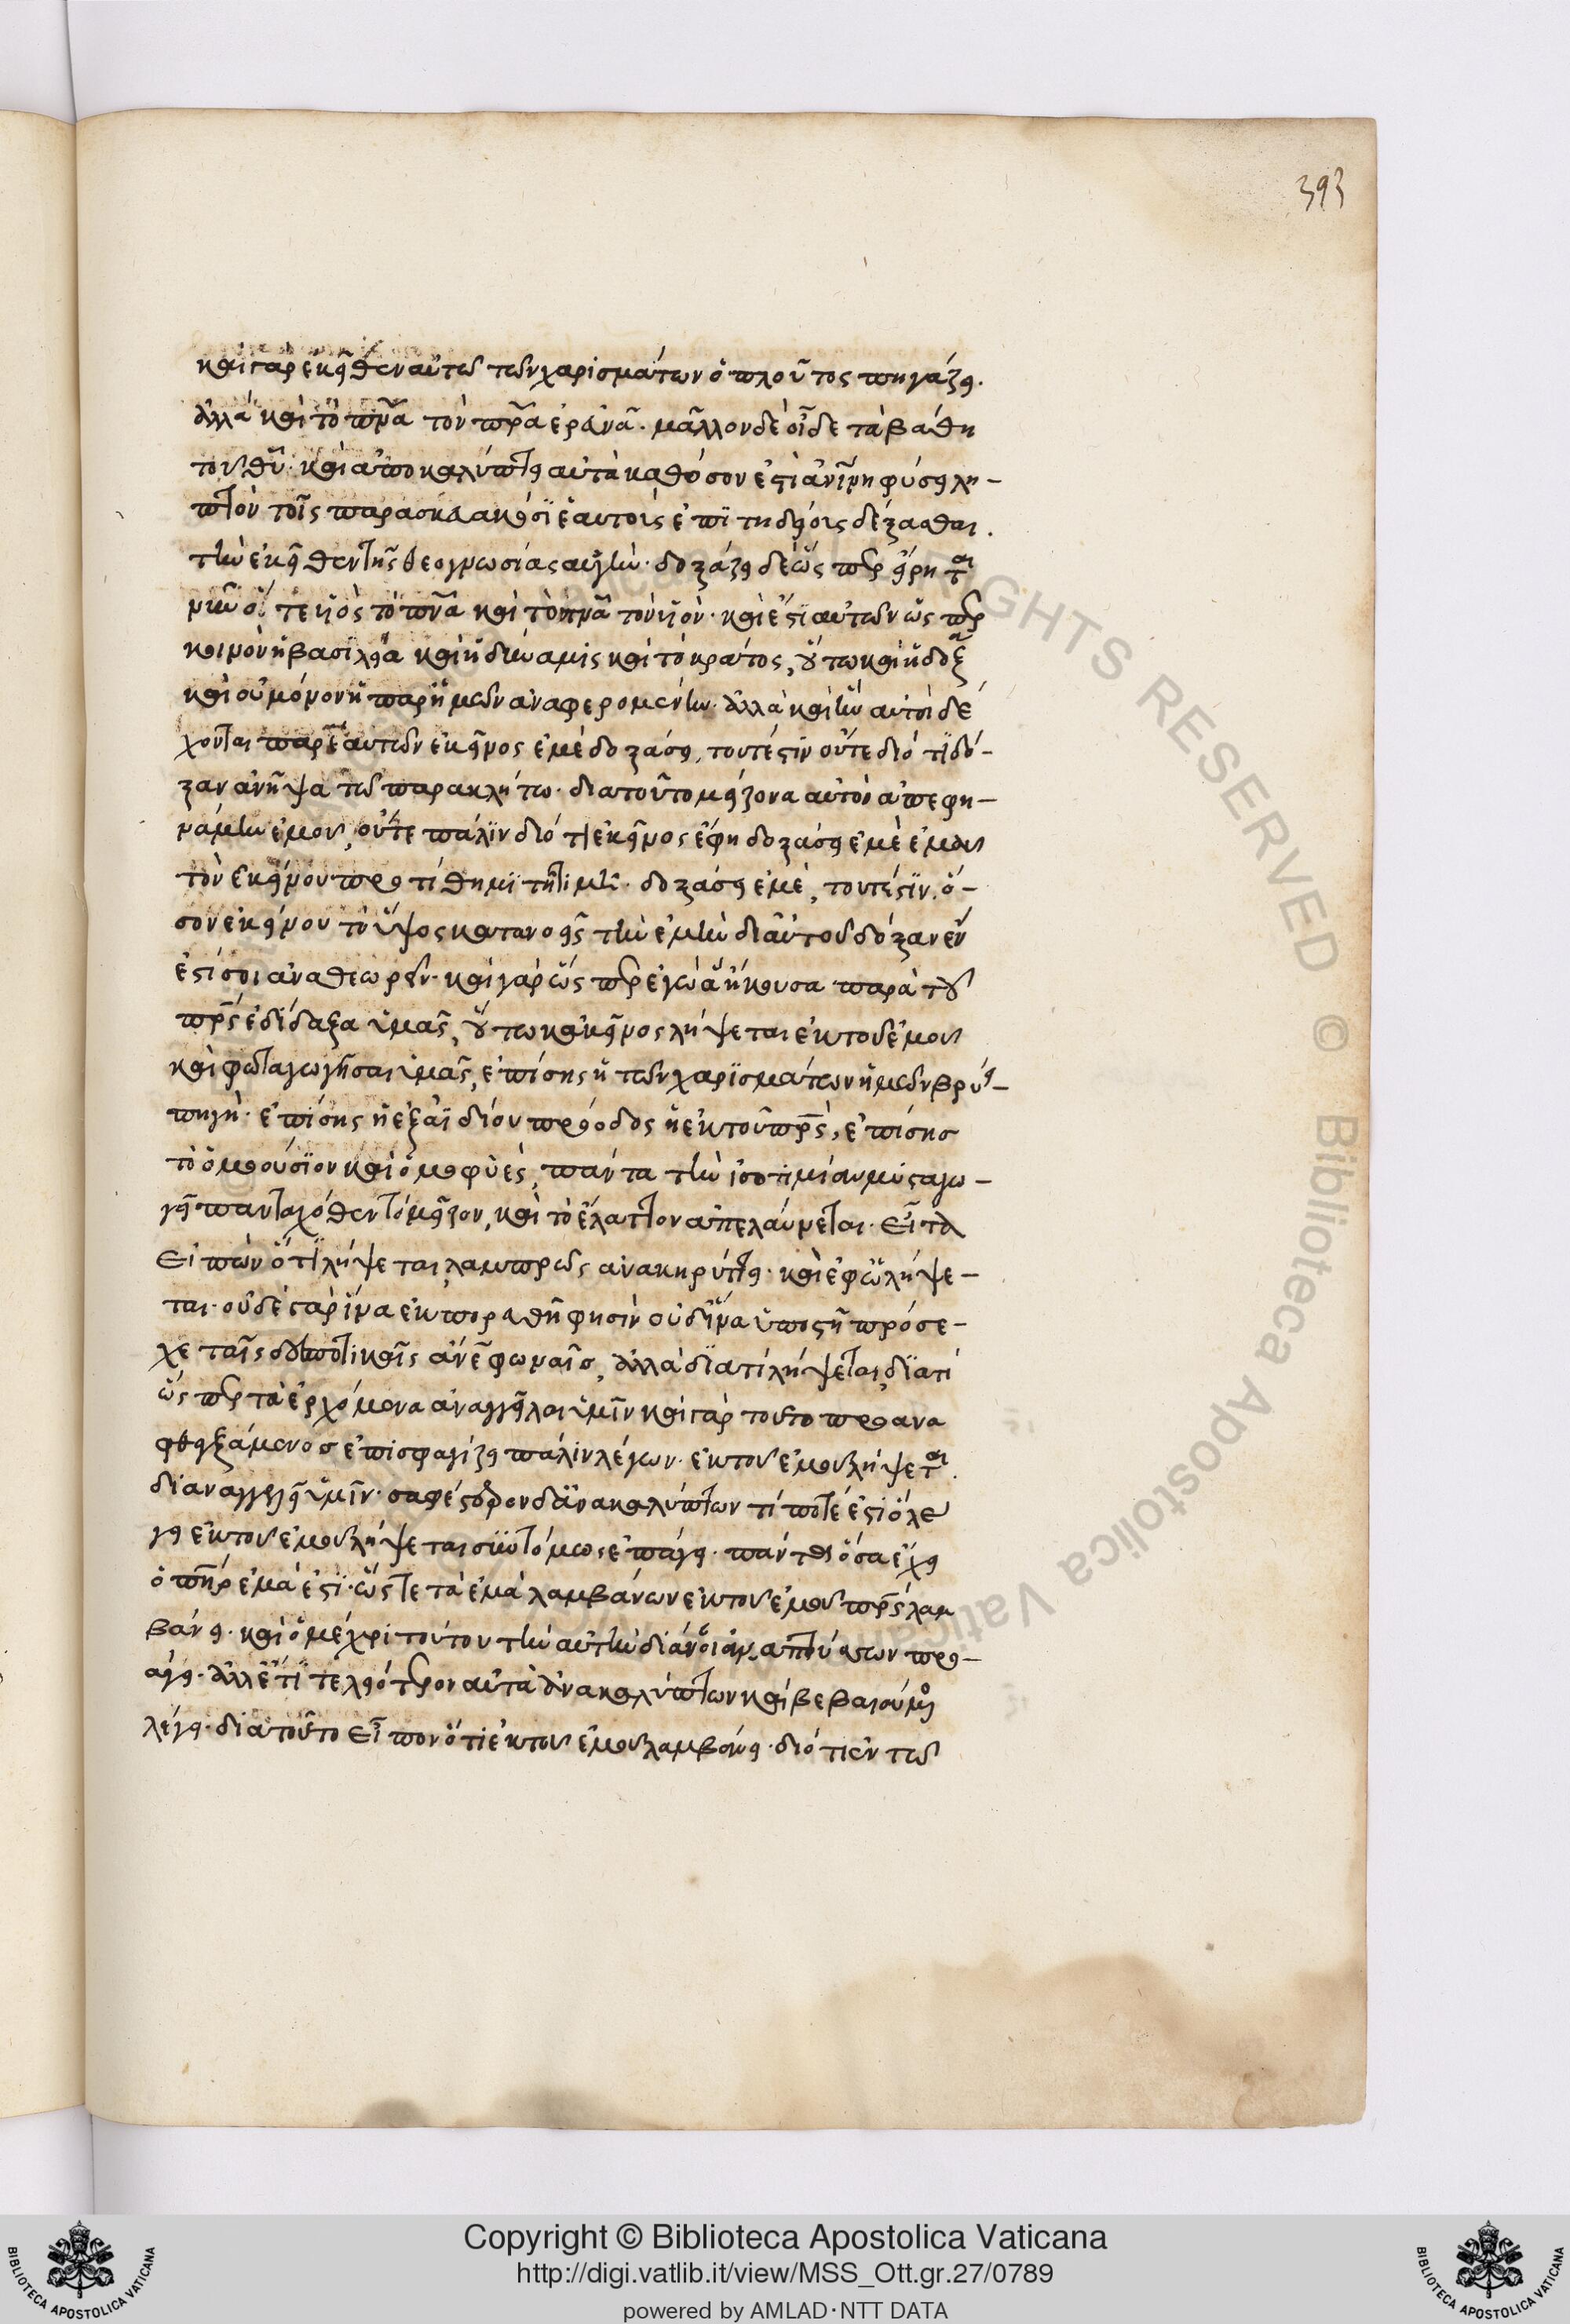 393
καὶ γὰρ ἐκεῖθεν αὐτῶ τῶν χαρισμάτων ὁ πλοῦτος πηγάζει.
ἀλλὰ καὶ τὸ πνα τὸν πρα ἐρευνᾶ. μᾶλλον δὲ οἶδε τὰ βάθη
τοῦ θυ. καὶ ἀποκαλύπτει αὐτὰ καθόσον ἐστὶ ἀνίνη φύσει λη-
πτὸν τοῖς παρασκευακόσι ἑαυτοὺς ἐπιτηδείοις δέξασθαι.
τὴν ἐκεῖθεν τῆς θεογνωσίας αὐγήν. δοξάζει δὲ ὥσπερ εἴρηται
νῦν ὅ τε υἱὸς τὸ πνα καὶ τὸ πνα τὸν υἱόν. καὶ ἔστι αὐτῶν ὥσπερ
κοινὸν ἡ βασιλεία καὶ ἡ δύναμις καὶ τὸ κράτος, οὕτω καὶ ἡ δόξα
καὶ οὐ μόνον ἡ παρ ἡμῶν ἀναφερομένη. ἀλλὰ καὶ ἣν αὐτοὶ δέ
χονται παρ ἑαυτῶν ἐκεῖνος ἐμὲ δοξάσει, τουτέστιν οὔτε διότι δό-
ξαν ἀνῆψα τῶ παρακλήτω. διατοῦτο μείζονα αὐτὸν ἀπεφη-
νάμην ἐμοῦ, οὔτε πάλιν διότι ἐκεῖνος ἔφην δοξάσει ἐμὲ ἐμαυ
τὸν ἐκείνου προτίθημι τῆ τιμῆ. δοξάσει ἐμὲ, τουτέστιν. ὅ-
σον ἐκείνου τὸ ὕψος κατανοεῖς τὴν ἐμὴν δι αὐτοῦ δόξαν ἕν
ἐστί σοι ἀναθεωρεῖν. καὶ γὰρ ὥσπερ ἐγὼ ἃ ἤκουσα παρὰ τοῦ
πρς ἐδίδαξα ὑμᾶς, οὕτω κακεῖνος λήψεται ἐκ τοῦ ἐμοῦ
καὶ φωταγωγῆσαι ὑμᾶς, ἐπίσης ἡ τῶν χαρισμάτων ἡμῶν βρύει-
πηγὴ. ἐπίσης ἡ ἐξ ἀϊδίου πρόοδος ἡ ἐκ τοῦ πρς, ἐπίσης
τὸ ὁμοούσιον καὶ ὁμοφυὲς, πάντα τὴν ἰσοτιμίαν μυσταγω-
γεῖ πανταχόθεν τὸ μεῖζον, καὶ τὸ ἔλαττον ἀπελαύνεται. εἶτα
εἰπὼν ὅτι λήψεται λαμπρῶς ἀνακηρύττει. καὶ ἐφ ὧ λήψε-
ται. οὐδὲ γὰρ ἵνα ἐκπορευθῆ φησὶν οὐδ ἵνα ὑποστῆ πρόσε-
χε ταῖς δεσποτικαῖς ἀνεφωναῖς, ἀλλὰ διατί λήψεται διατί
ὥσπερ τὰ ἐρχόμενα ἀναγγεῖλαι ὑμῖν καὶ γὰρ τοῦτο προανα
φθεγξάμενος ἐπισφαγίζει πάλιν λέγων. ἐκ τοῦ ἐμοῦ λήψεται.
δι ἀναγγελεῖ ὑμῖν. σαφέστερον δ ἀνακαλύπτων τί ποτέ ἐστι ὃ λέ
γει ἐκ τοῦ ἐμοῦ λήψεται συντόμως ἐπάγει. πάντα ὅσα ἔχει
ὁ πηρ ἐμά ἐστι. ὥστε τὰ ἐμὰ λαμβάνων ἐκ τοῦ ἐμοῦ πρς λαμ
βάνει. καὶ ὁ μέχρι τούτου τὴν αὐτὴν διάνοιαν προ-
άγει. ἀλλ ἔτι τελεώτερον αὐτὰ ἀνακαλύπτων καὶ βεβαιούμενος
λέγει. διατοῦτο εἶπον ὅτι ἐκ τοῦ ἐμοῦ λαμβάνει. διότι ἐν τῶ
Copyright © Biblioteca Apostolica Vaticana
http://digi.vatlib.it/view/MSS_Ott.gr.27/0789
powered by AMLAD·NTT DATA